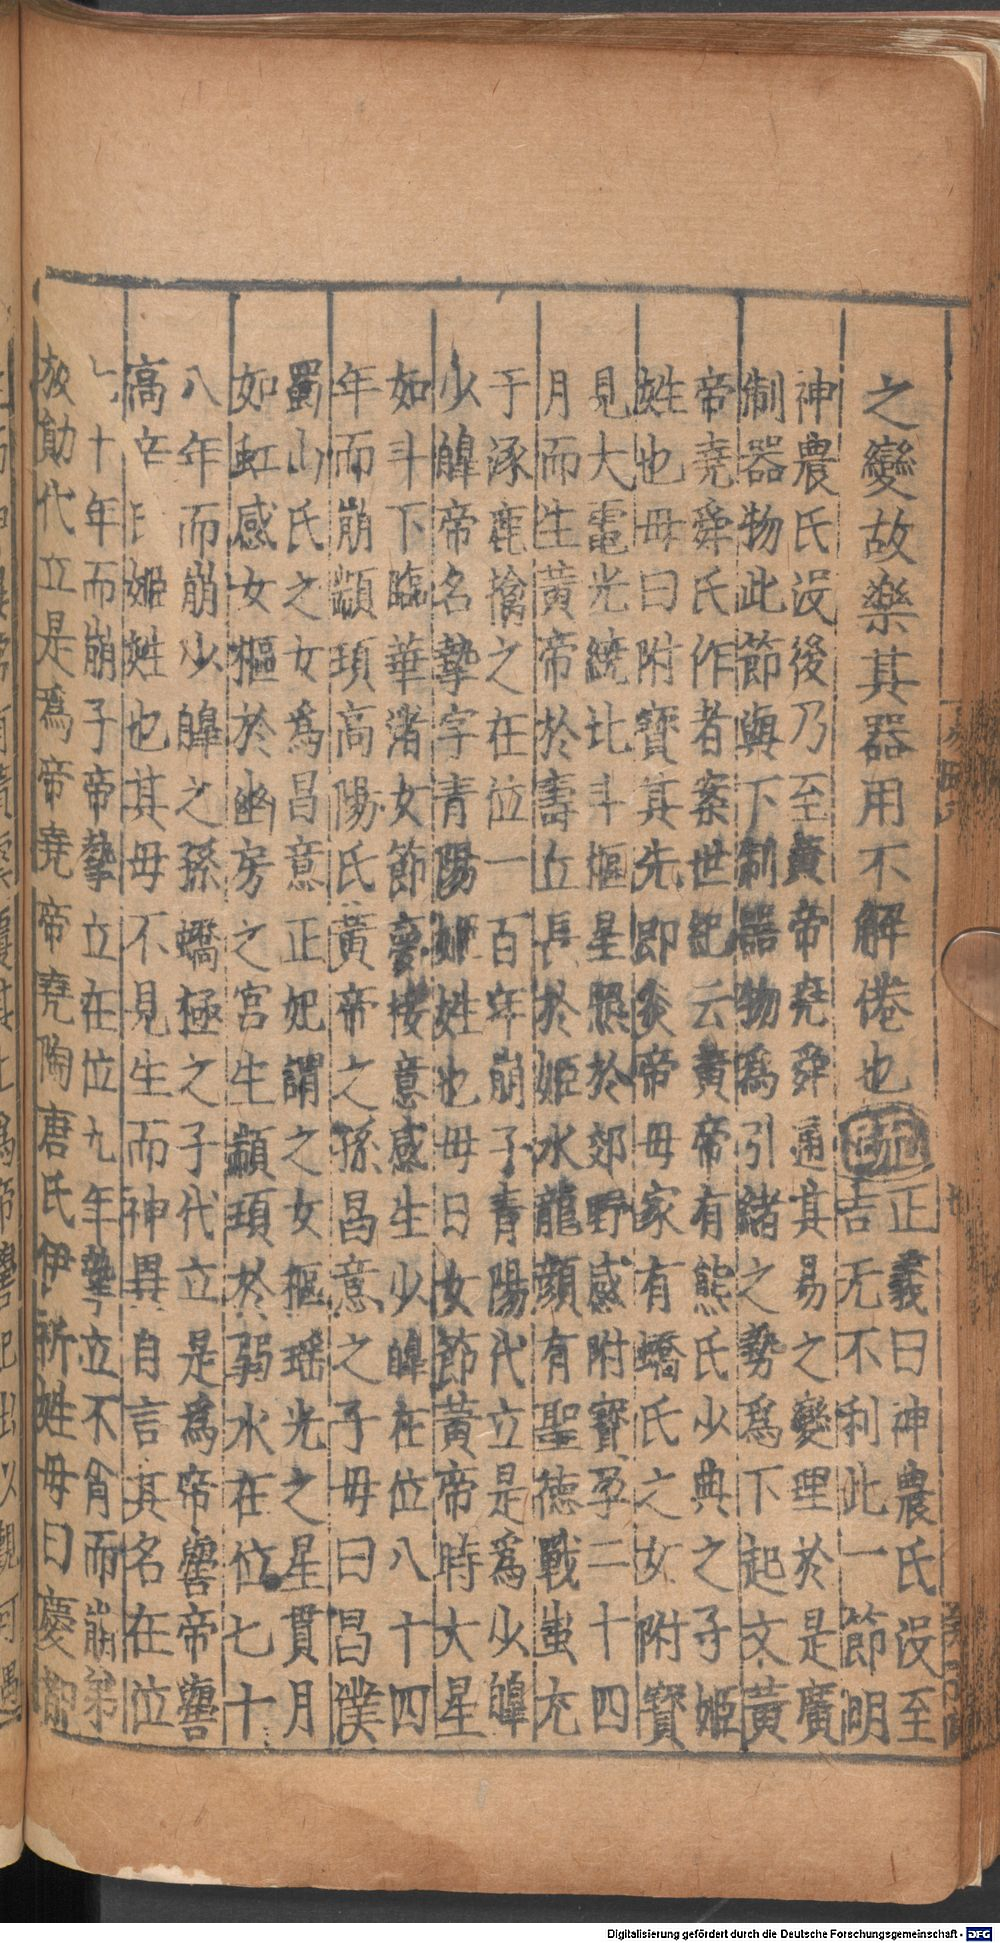 之變故樂其器用不解倦也疏正義曰神農氏沒至
吉无不利此一節明
神農氏沒後乃至黃帝堯舜通其易之變理於是廣
制器物此節與下制器物爲引緒之勢爲下起文黃
帝堯舜氏作者案世紀云黃帝有熊氏少典之子姬
姓也母曰附寶其先即炎帝母家有蟜氏之女附寶
見大電光繞北斗樞星照於郊野感附寶孕二十四
月而生黃帝於壽丘長於姬水龍顏有聖德戰蚩尤
于涿鹿擒之在位一百年崩子青陽代立是爲少皥
少皥帝名摯字青陽姬姓也母曰女節黃帝時大星
如斗下臨華渚女節夢接意感生少皥在位八十四
年而崩顓頊高陽氏黃帝之孫昌意之子母曰昌僕
蜀山氏之女爲昌意正妃謂之女樞瑶光之星貫月
如虹感女樞於幽房之宮生顓頊於弱水在位七十
八年而崩少皥之孫蟜極之子代立是爲帝嚳帝嚳
高辛氏姬姓也其母不見生而神異自言其名在位
七十年而崩子帝摯立在位九年摯立不肖而崩弟
放勛代立是爲帝堯帝堯陶唐氏伊祈姓母曰慶都
Digitalisierung gefördert durch die Deutsche Forschungsgemeinschaft - DFG